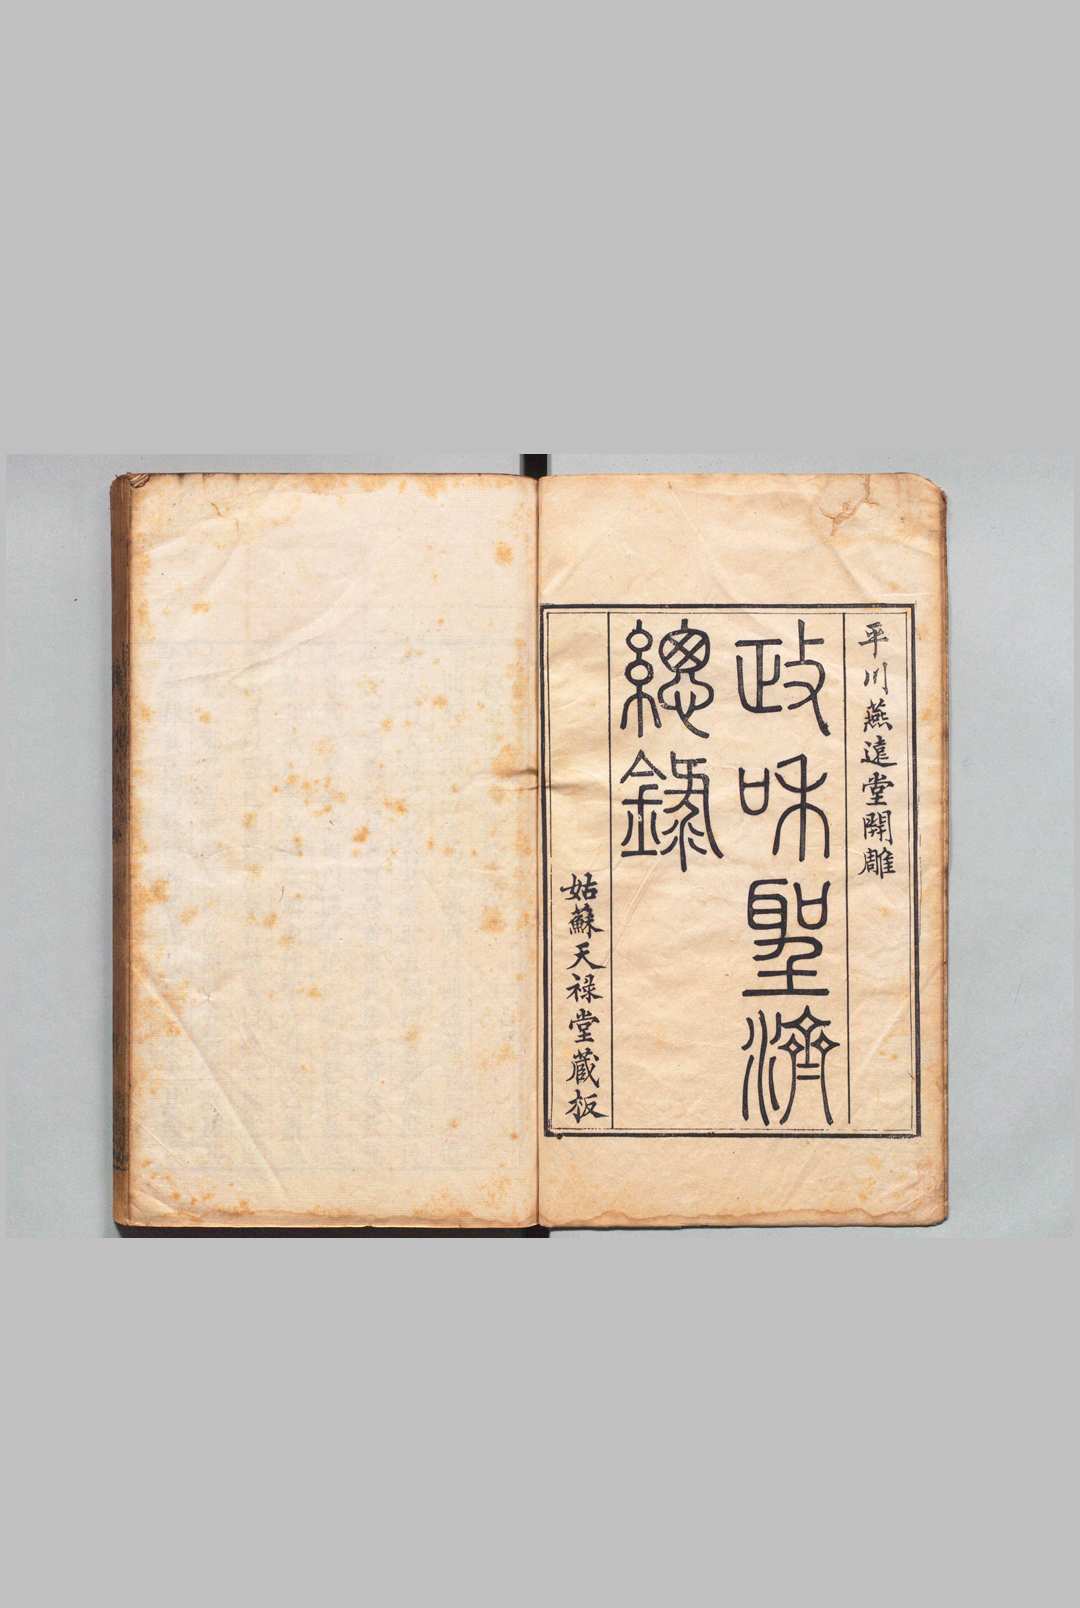 平川燕遠堂開雕
政和聖濟
總錄
姑蘇天祿堂藏板